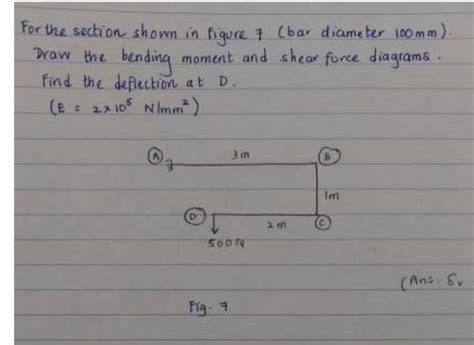 For the section shown in Figure 7 (bar diameter 100mm).
Draw the bending moment and shear force diagrams.
Find the deflection at D.
(E = 2x10⁵ N/mm²)
A 3m B
1m
D 2m C
500N
(Ans: δv
Fig. 7